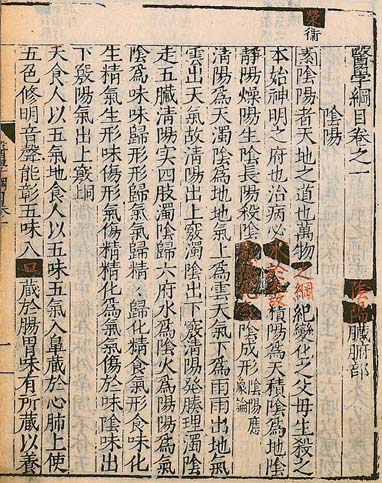 榮衛
醫學綱目卷之一 陰陽臟腑部
陰陽
素陰陽者天地之道也萬物之綱紀變化之父母生殺之
本始神明之府也治病必求於本故積陽爲天積陰爲地陰
靜陽燥陽生陰長陽殺陰陰成形陰陽應象論
清陽爲天濁陰爲地地氣上爲雲天氣下爲雨雨出地氣
雲出天氣故清陽出上竅濁陰出下竅清陽發腠理濁陰
走五臟清陽實四肢濁陰歸六府水爲陰火爲陽陽爲氣
陰爲味味歸形形歸氣氣歸精精歸化精食氣形食味化
生精氣生形味傷形氣傷精精化爲氣氣傷於味陰味出
下竅陽氣出上竅
天食人以五氣地食人以五味五氣入鼻藏於心肺上使
五色修明音聲能彰五味入口藏於腸胃味有所藏以養